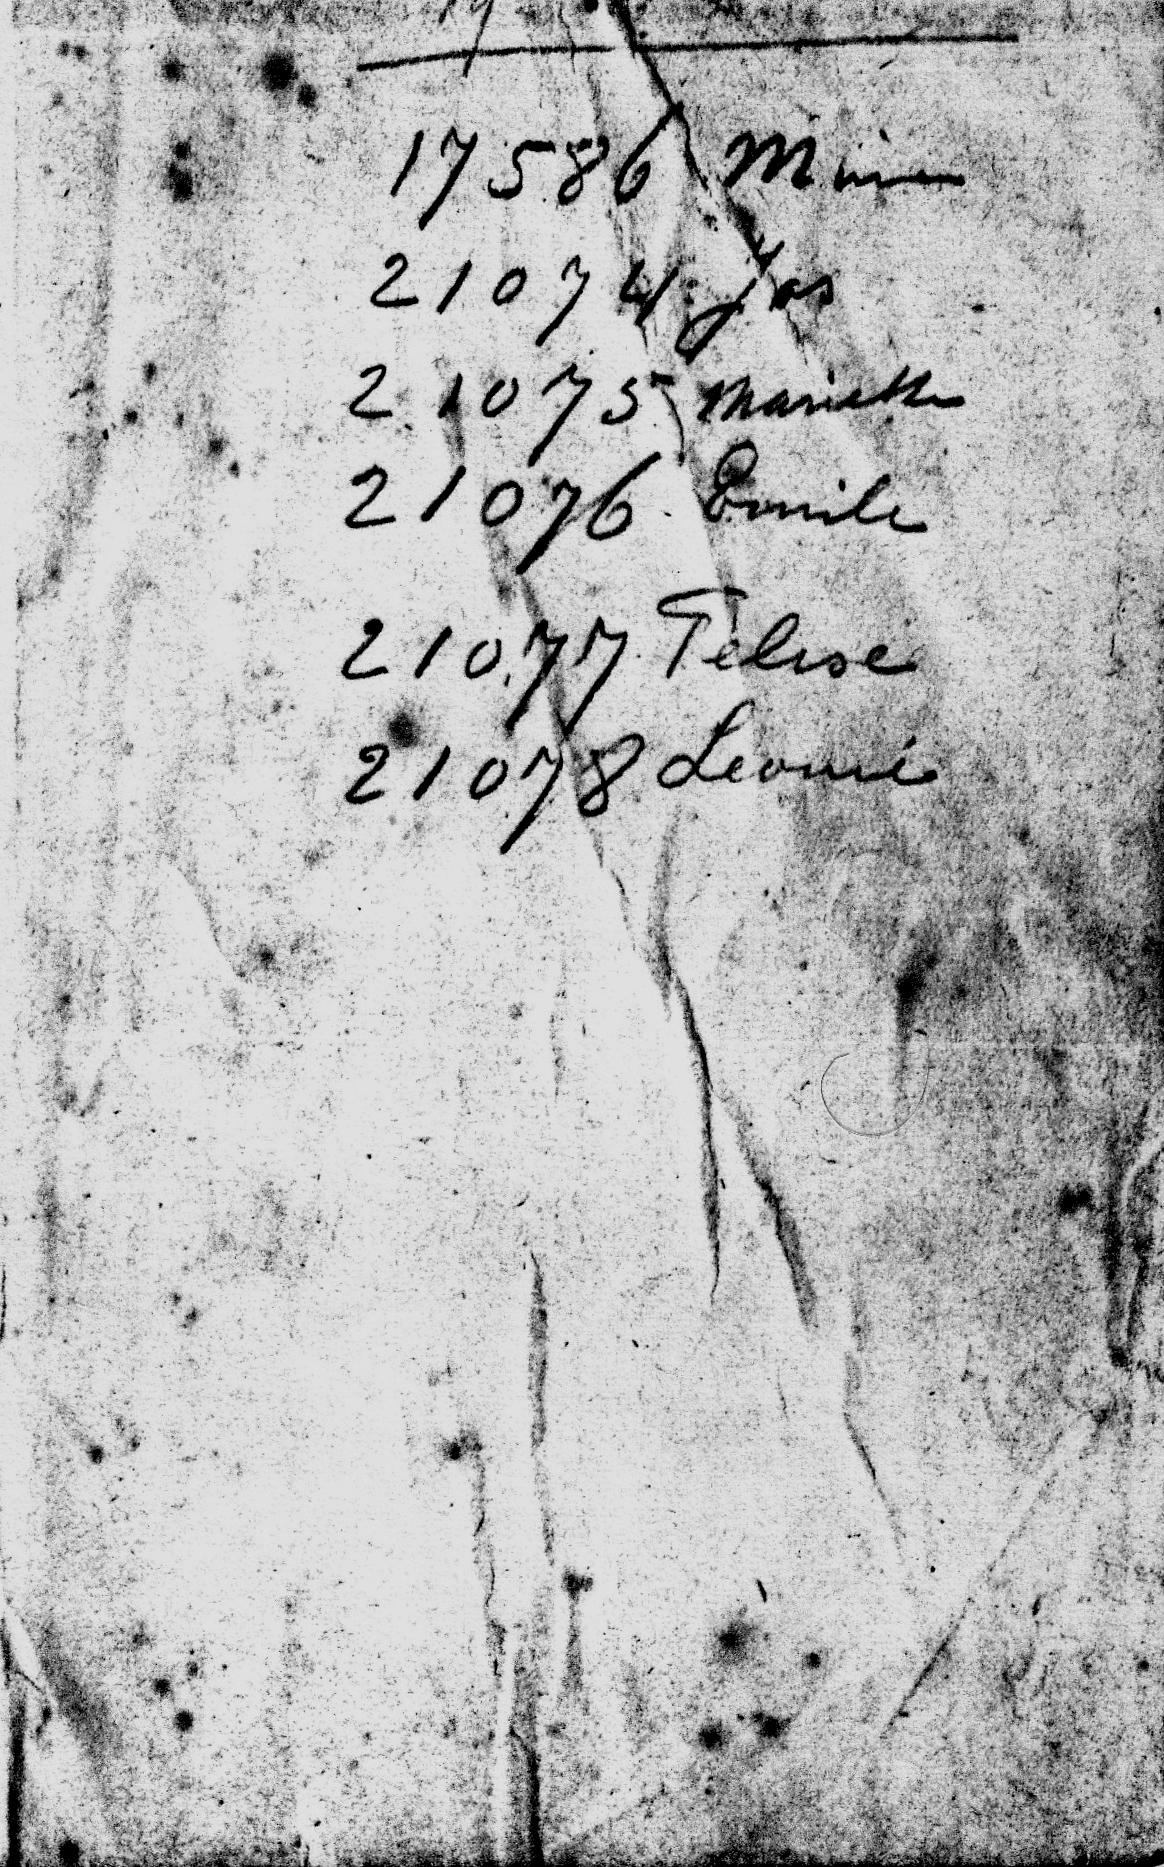 17586 Mine
21074 Jos
21075 Mariette
21076 Emile
21077 Telise
21078 Leonie